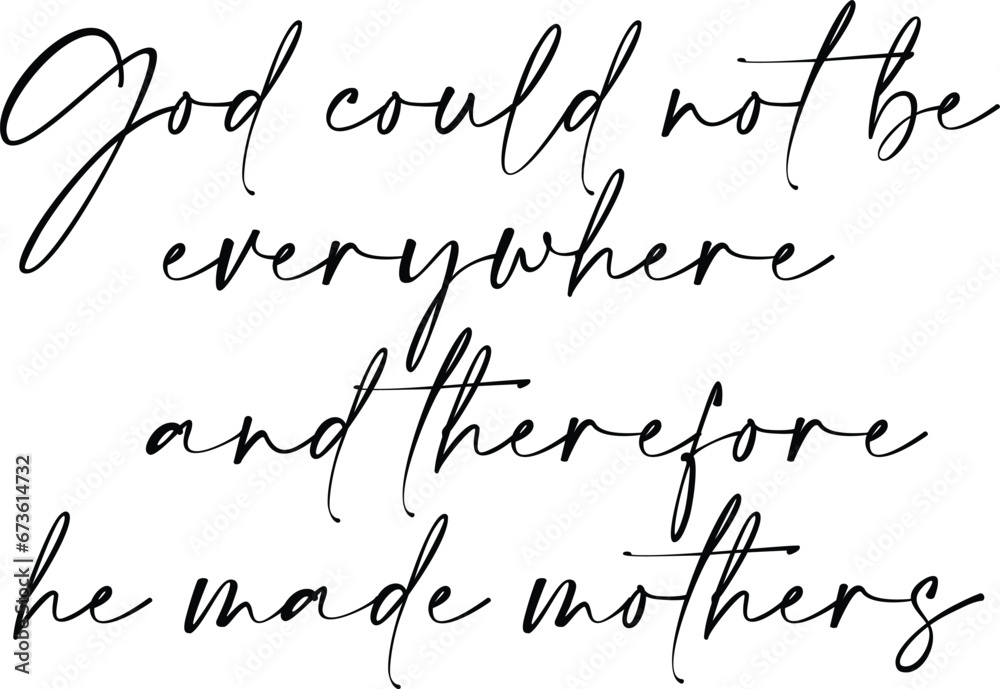 God could not be
everywhere
and therefore
he made mothers
Adobe Stock | #673614732